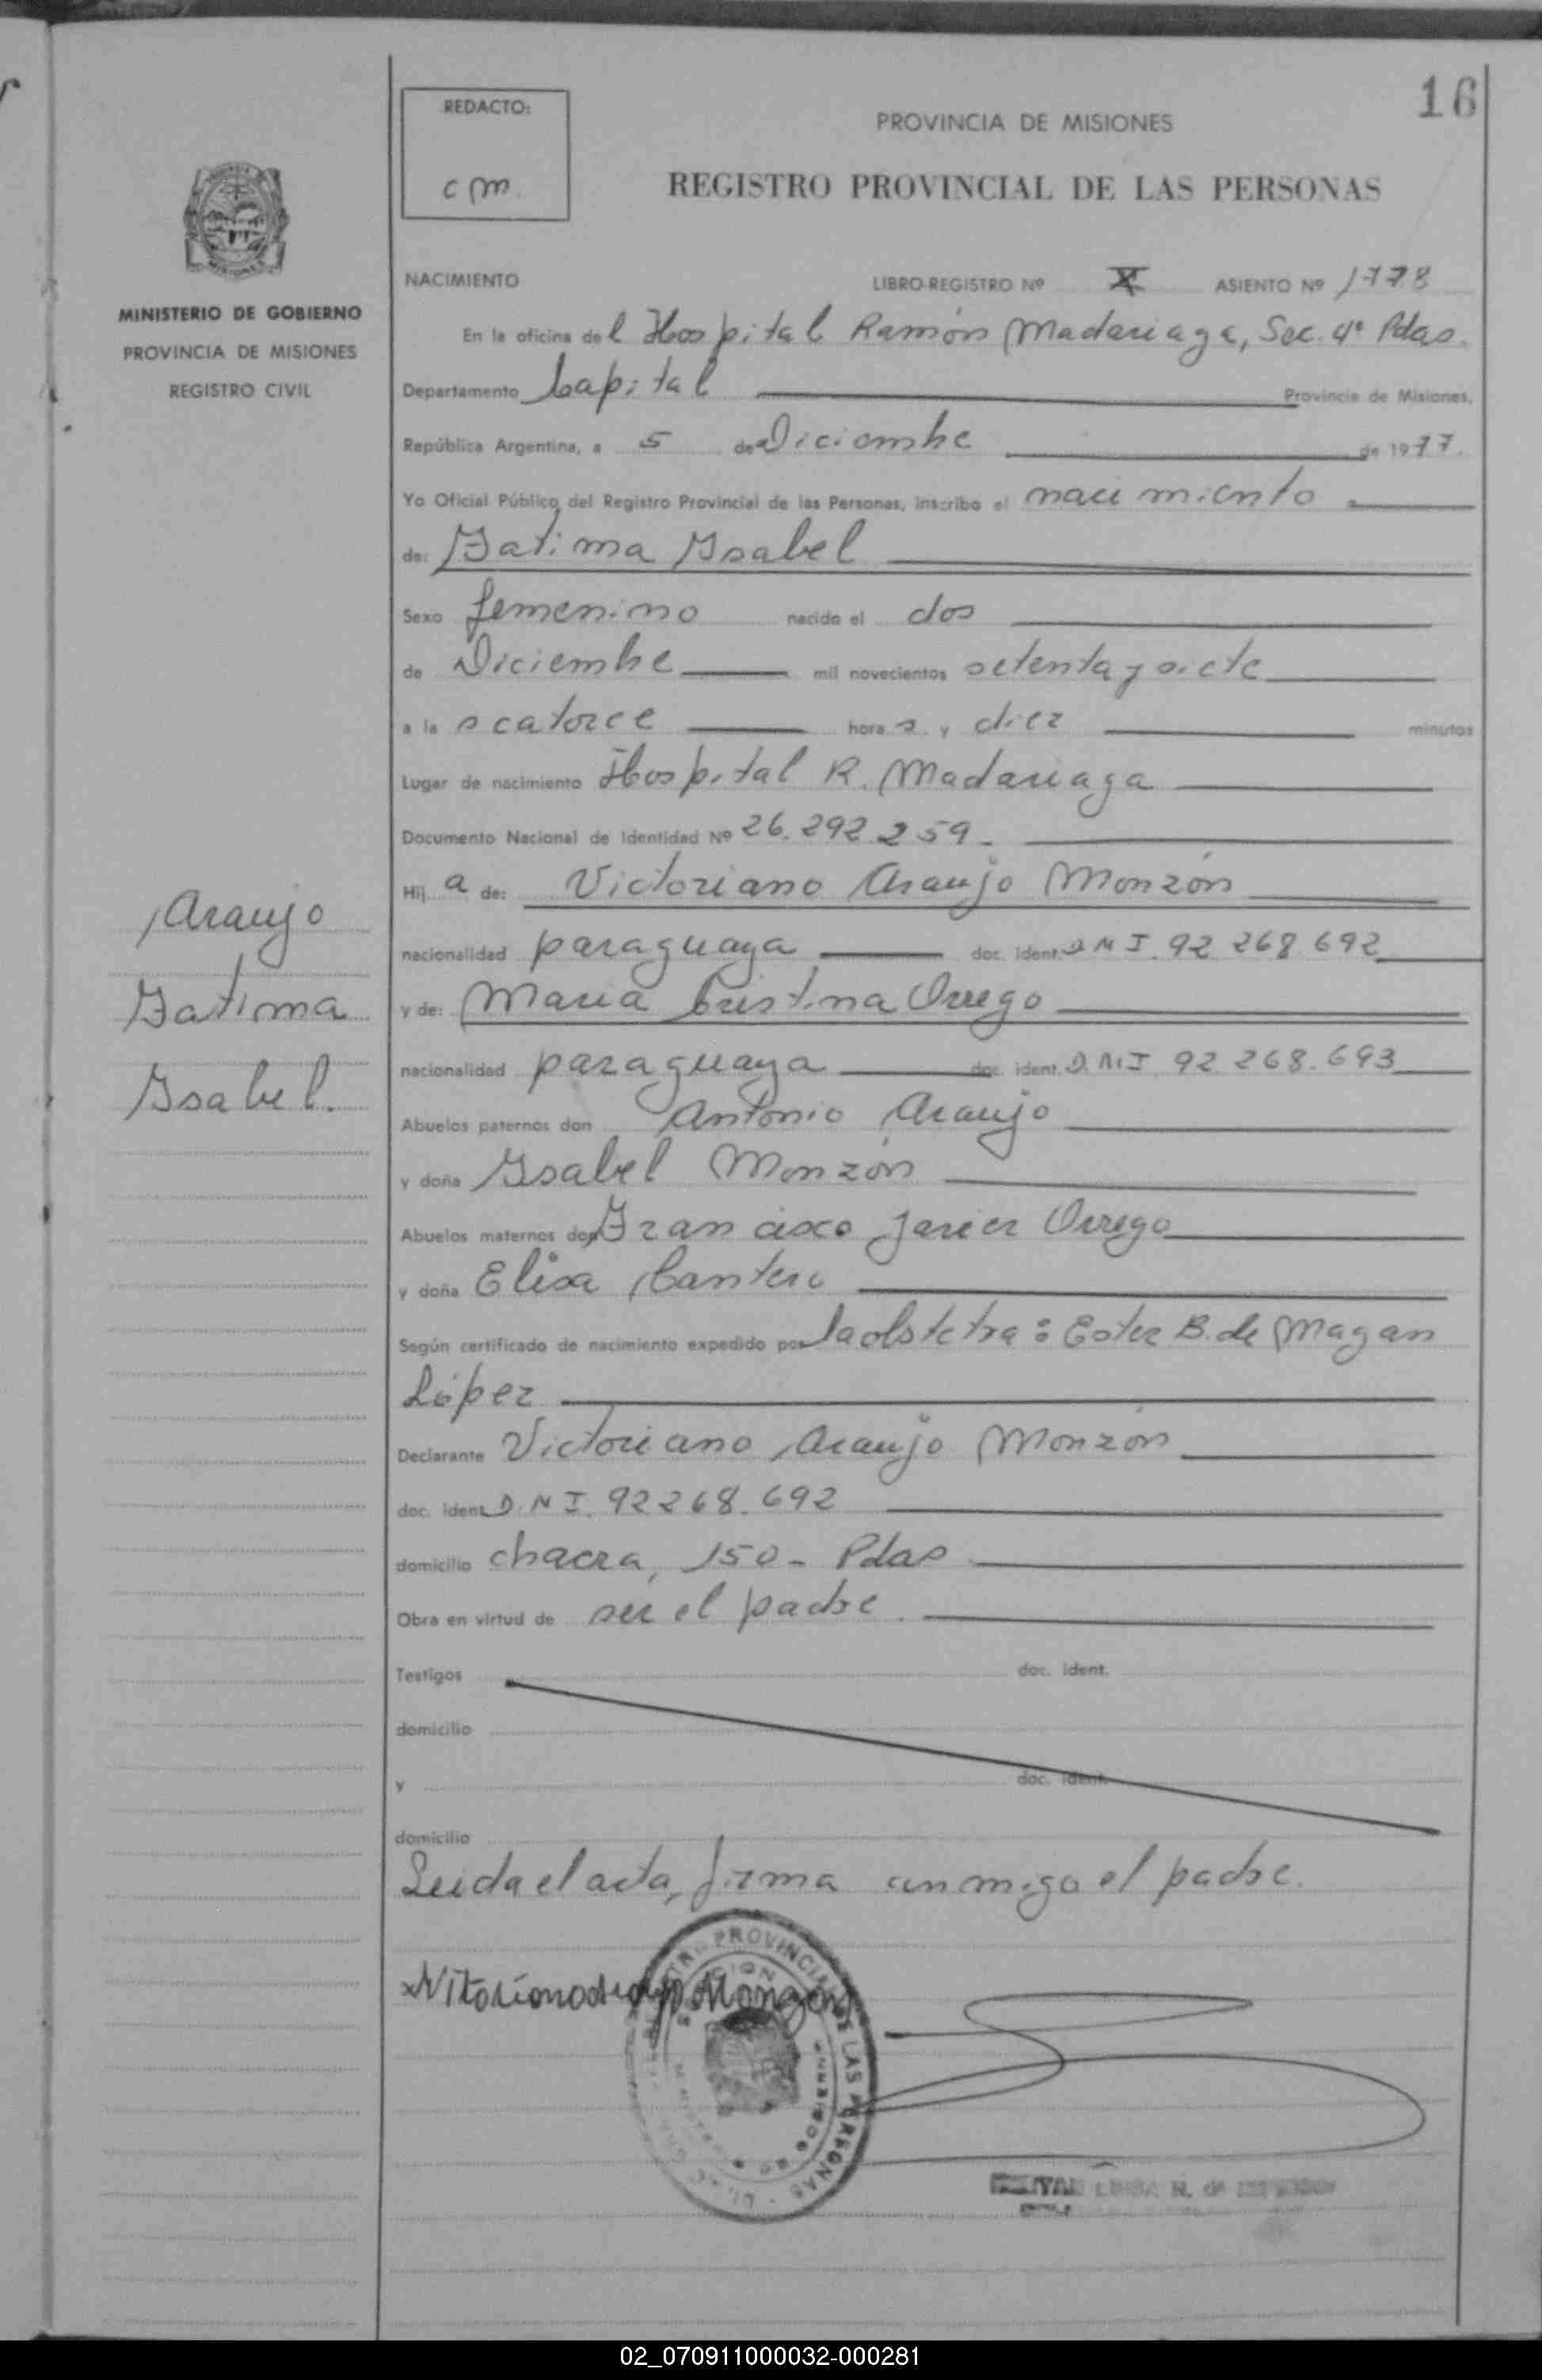 16
REDACTO:
cpm.
PROVINCIA DE MISIONES
REGISTRO PROVINCIAL DE LAS PERSONAS
MINISTERIO DE GOBIERNO
PROVINCIA DE MISIONES
REGISTRO CIVIL
NACIMIENTO LIBRO-REGISTRO Nº X ASIENTO Nº 1778
En la oficina del Hospital Ramón Madariaga, Sec. 4º Pdas.
Departamento Capital Provincia de Misiones,
República Argentina, a 5 de Diciembre de 1977.
Yo Oficial Público del Registro Provincial de las Personas, inscribo el nacimiento
de: Fatima Ysabel
Sexo femenino nacido el dos
de Diciembre mil novecientos setenta y siete
a las catorce horas y diez minutos
Lugar de nacimiento Hospital R. Madariaga
Documento Nacional de Identidad Nº 26.292.259.
Hija de: Victoriano Araujo Monzón
nacionalidad paraguaya doc. ident. D.N.I. 92 268.692
y de: Maria Cristina Orrego
nacionalidad paraguaya doc. ident. D.N.I. 92 268.693
Abuelos paternos don Antonio Araujo
y doña Ysabel Monzón
Abuelos maternos don Francisco Javier Orrego
y doña Elisa Cantero
Según certificado de nacimiento expedido por la obstetra: Ester B. de Magan
López
Declarante Victoriano Araujo Monzón
doc. ident. D.N.I. 92 268.692
domicilio chacra, 150 - Pdas
Obra en virtud de ser el padre.
Testigos doc. ident.
domicilio
y doc. ident.
domicilio
Leida el acta, firma conmigo el padre.
Araujo
Fatima
Ysabel.
PROVINCIAL DE LAS PERSONAS
02_070911000032-000281